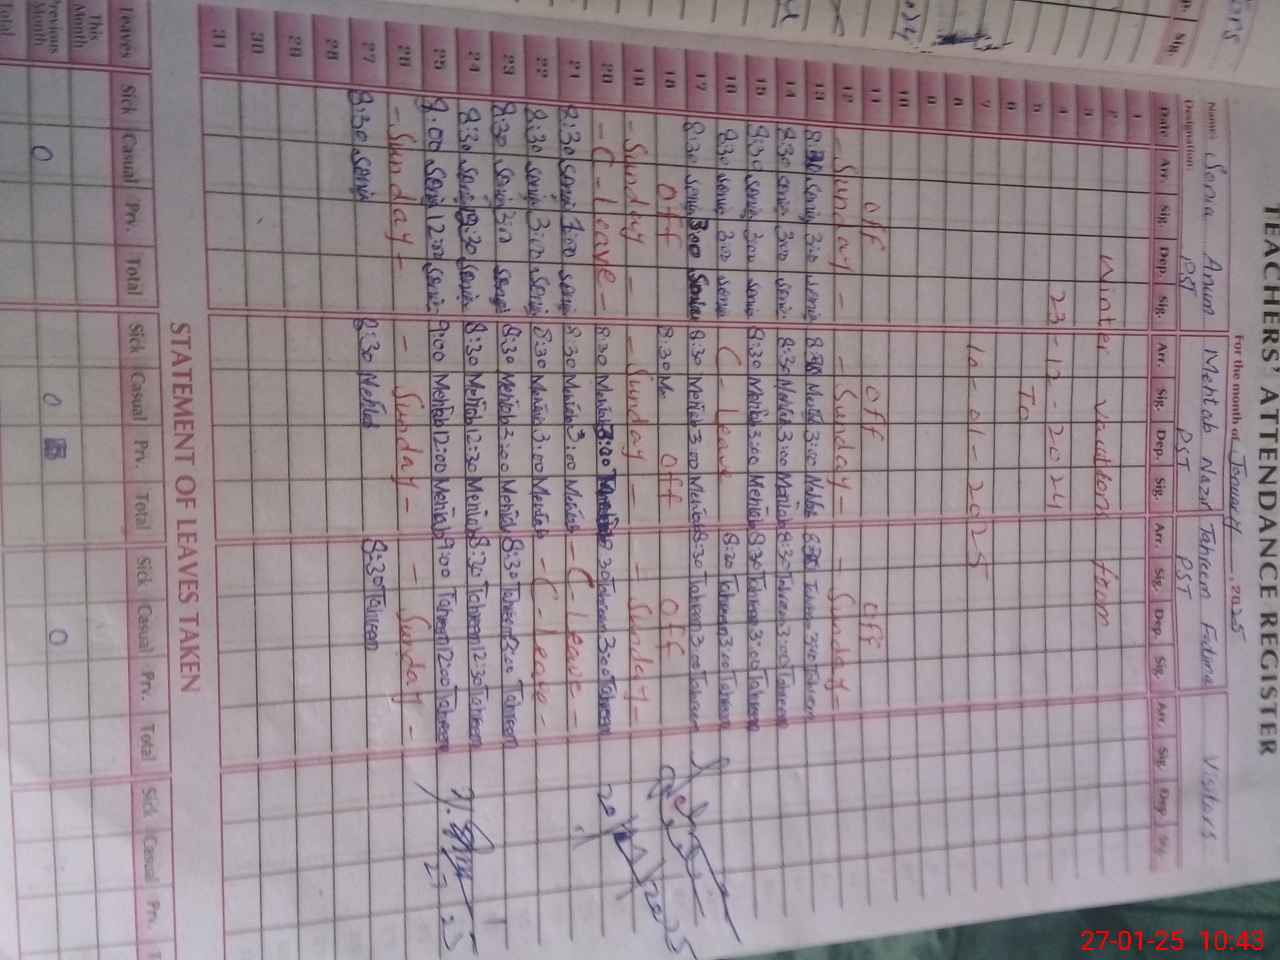 TEACHERS' ATTENDANCE REGISTER
For the month of January, 2025
Name: Sonia Anum Mehtab Nazir Tahreem Fatima Visitors
Designation: PST PST PST
Date Arr. Sig. Dep. Sig. Arr. Sig. Dep. Sig. Arr. Sig. Dep. Sig. Arr. Sig. Dep. Sig.
1
2 Winter from
3
4 23-12-2024
5 To
6
7 10-01-2025
8
9
10
11 off off off
12 -Sunday- -Sunday- -Sunday-
13 8:30 Sonia 3:00 Sonia 8:30 3:00 8:30
14 8:30 Sonia 3:00 Sonia 8:30 Mehtab 3:00 Mehtab 8:30 Tahreem 3:00 Tahreem
15 8:30 Sonia 3:00 Sonia 8:30 Mehtab 3:00 Mehtab 8:30 Tahreem 3:00 Tahreem
16 8:30 Sonia 3:00 Sonia C-Leave 8:30 Tahreem 3:00 Tahreem
17 8:30 Sonia 3:00 Sonia 8:30 Mehtab 3:00 Mehtab 8:30 Tahreem 3:00 Tahreem
18 off 8:30 off off
19 -Sunday- -Sunday- -Sunday-
20 -C-leave- 8:30 Mehtab 3:00 8:30 Tahreem 3:00 Tahreem
21 8:30 Sonia Sonia 8:30 Mehtab 3:00 Mehtab -C-leave-
22 8:30 Sonia 3:00 Sonia 8:30 Mehtab 3:00 Mehtab -C-leave-
23 8:30 Sonia 3:00 Sonia 8:30 Mehtab 3:00 Mehtab 8:30 Tahreem 3:00 Tahreem
24 8:30 Sonia 12:30 Sonia 8:30 Mehtab 12:30 Mehtab 8:30 Tahreem 12:30 Tahreem
25 8:00 Sonia 12:00 Sonia 9:00 Mehtab 12:00 Mehtab 9:00 Tahreem 12:00 Tahreem
26 -Sunday- - Sunday- - Sunday -
27 8:30 Sonia 8:30 Mehtab 8:30 Tahreem
28
29
30
31
STATEMENT OF LEAVES TAKEN
Leaves Sick Casual Prv. Total Sick Casual Prv. Total Sick Casual Prv. Total Sick Casual Prv.
This Month
Previous Month 0 0 0
Total
27-01-25 10:43